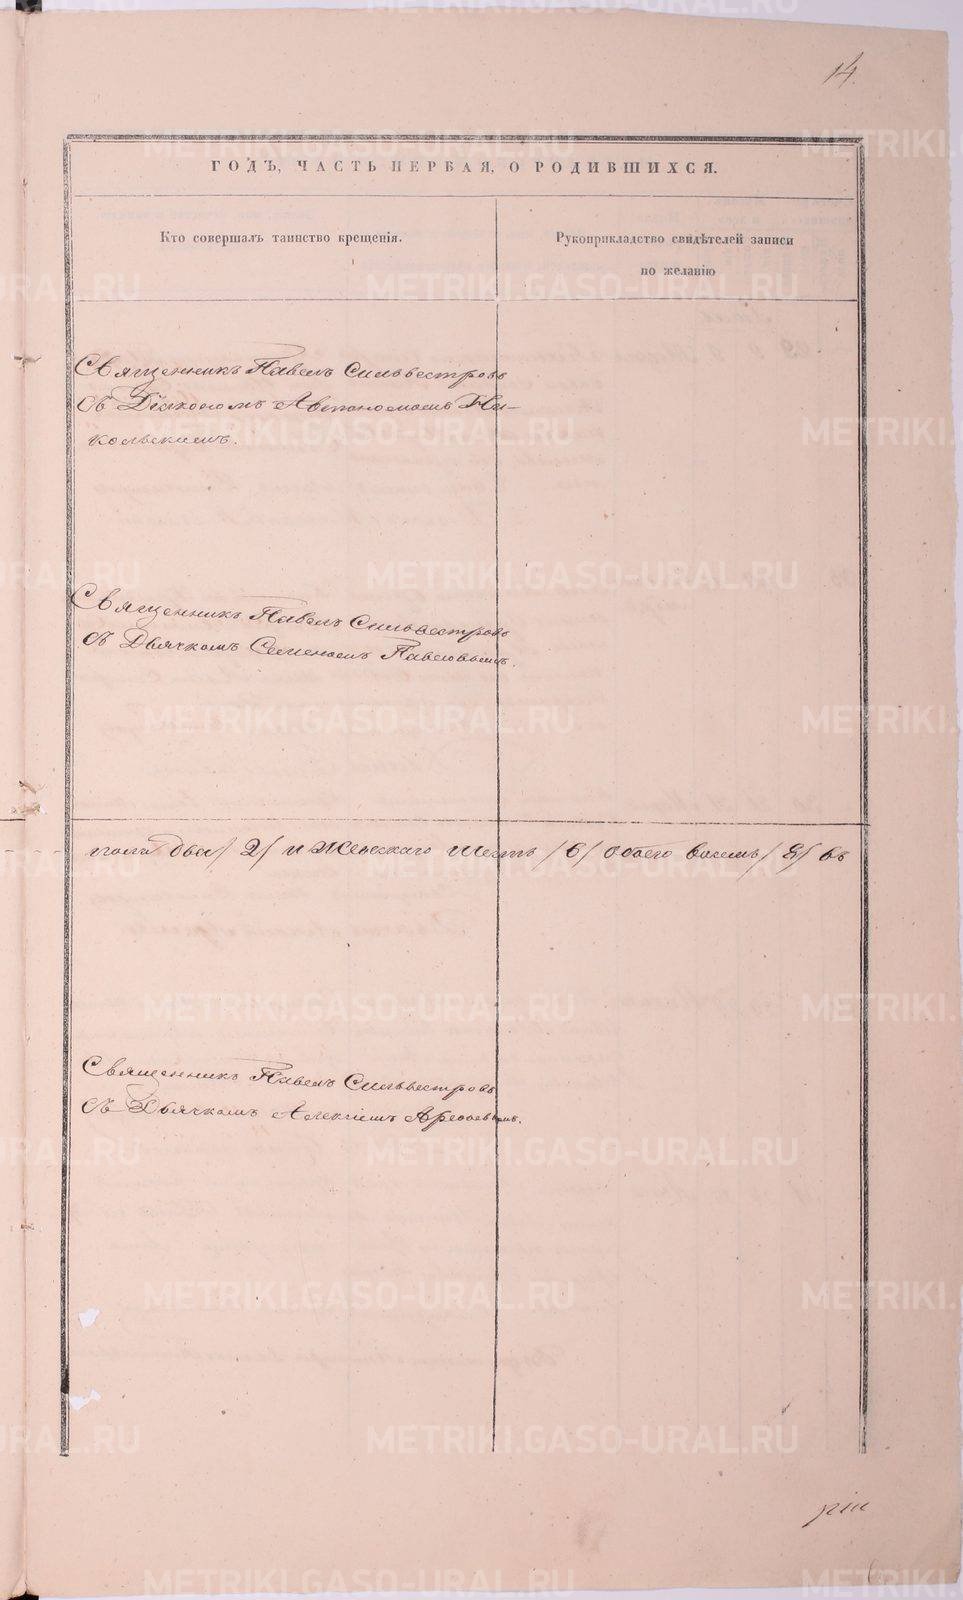 14.
ГОДЪ, ЧАСТЬ ПЕРВАЯ, О РОДИВШИХСЯ.
Кто совершалъ таинство крещенія.
Рукоприкладство свидѣтелей записи
по желанію
Священникъ Павелъ Сильвестровъ
съ Діякономъ Автономомъ Ни-
кольскимъ.
Священникъ Павелъ Сильвестровъ
съ Дьячкомъ Семеномъ Павловымъ.
пола два /2/ и Женскаго шесть /6/ обоего восемь /8/ въ
Священникъ Павелъ Сильвестровъ
съ Дьячкомъ Алексіемъ
METRIKI.GASO-URAL.RU